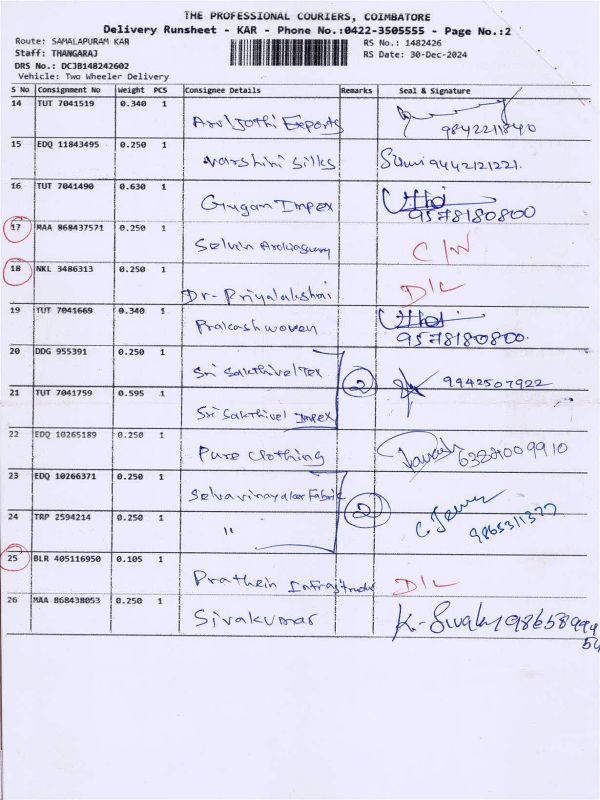 THE PROFESSIONAL COURIERS, COIMBATORE
Delivery Runsheet - KAR - Phone No.:0422-3505555 - Page No.:2
Route: SAMALAPURAM KAR RS No.: 1482426
Staff: THANGARAJ RS Date: 30-Dec-2024
DRS No.: DCJB148242602
Vehicle: Two Wheeler Delivery
S No Consignment No Weight PCS Consignee Details Remarks Seal & Signature
14 TUT 7041519 0.340 1 Arul Jothi Exports 9842211840
15 EDQ 11843495 0.250 1 Varshini Silks 9442121221
16 TUT 7041490 0.630 1 Gugan Impex 9578180800
17 MAA 868437571 0.250 1 Selvin C/N
18 NKL 3486313 0.250 1 Dr. Priyalakshmi D/L
19 TUT 7041669 0.340 1 Prakash woven 9578180800
20 DDG 955391 0.250 1 Sri Sakthivel Tex 2 9942507922
21 TUT 7041759 0.595 1 Sri Sakthivel Impex
22 EDQ 10265189 0.250 1 Pure Clothing
23 EDQ 10266371 0.250 1 Selvavinayaker Fabric 2
24 TRP 2594214 0.250 1 "
25 BLR 405116950 0.105 1 Prathein D/L
26 MAA 868438053 0.250 1 Sivakumar